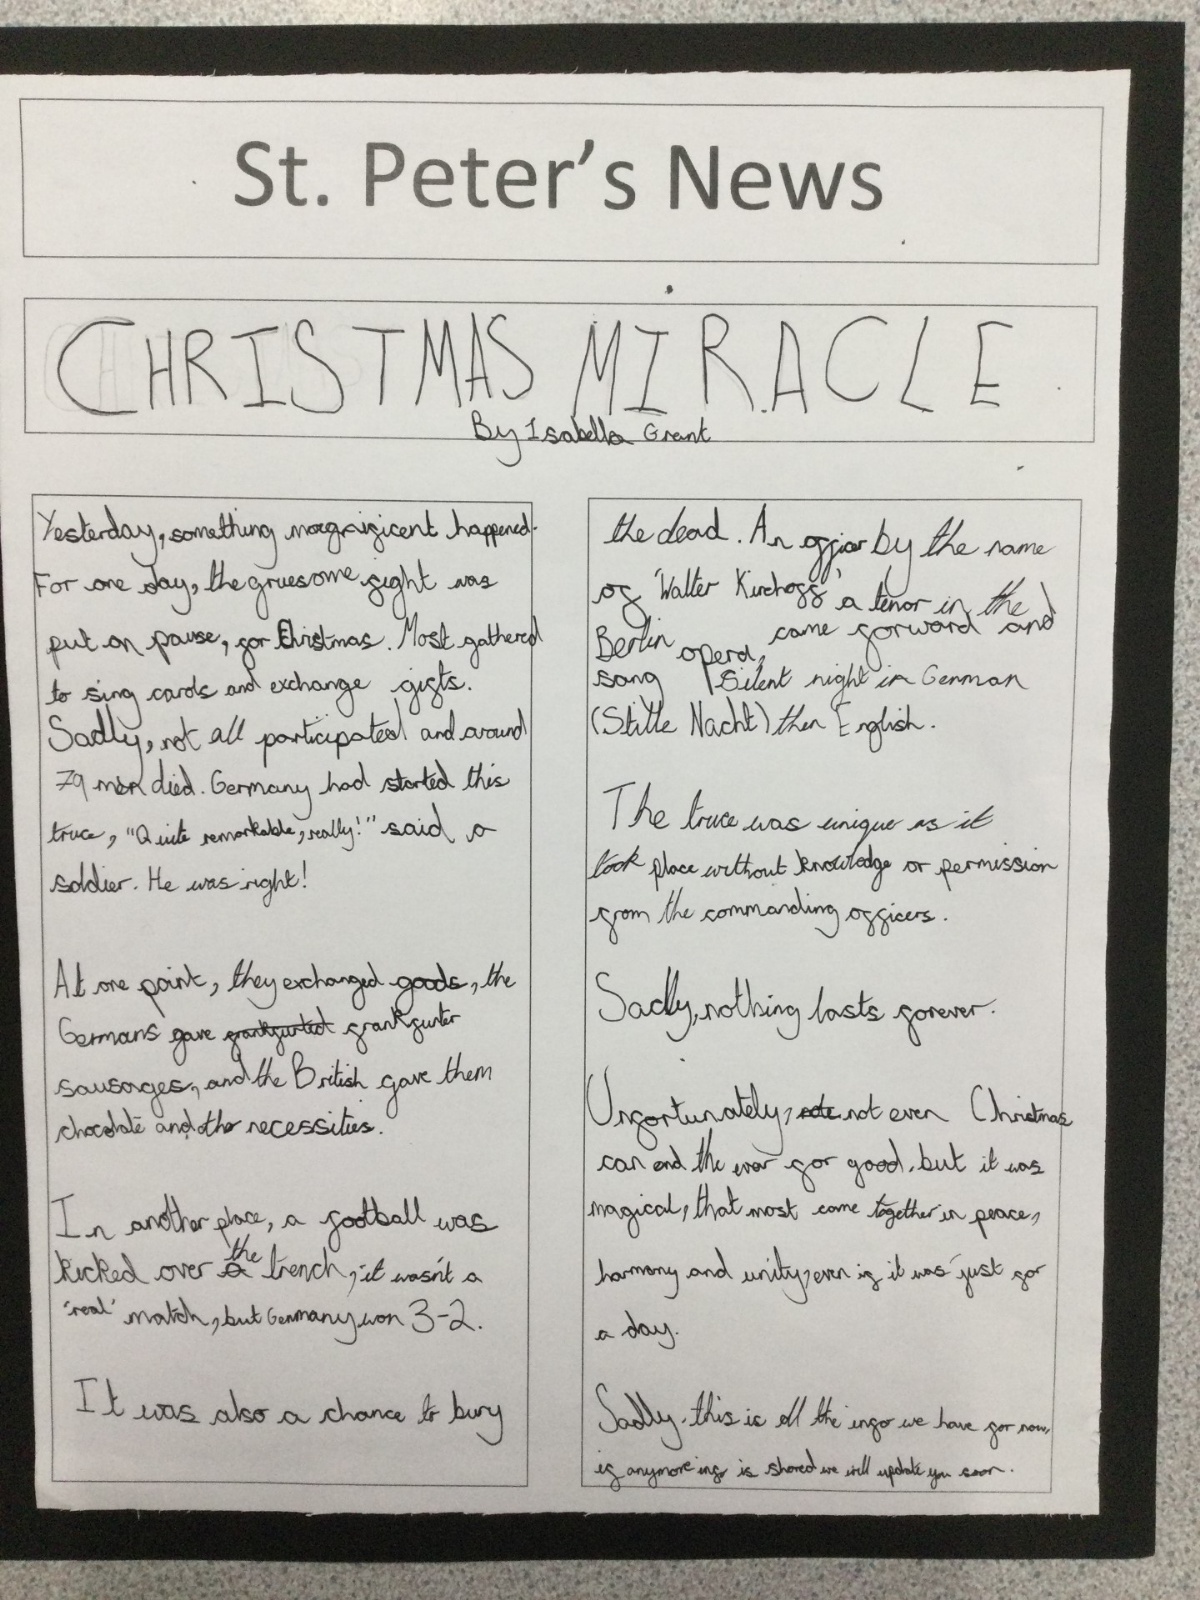 St. Peter's News
CHRISTMAS MIRACLE
By Isabella Grant
Yesterday, something magnificent happened.
For one day, the gruesome fight was
put on pause, for Christmas. Most gathered
to sing carols and exchange gifts.
Sadly, not all participated and around
79 men died. Germany had started this
truce, "Quite remarkable, really!" said a
soldier. He was right!
At one point, they exchanged goods, the
Germans gave frankfurter
sausages, and the British gave them
chocolate and other necessities.
In another place, a football was
kicked over the trench, it wasn't a
'real' match, but Germany won 3-2.
It was also a chance to bury
the dead. An officer by the name
of 'Walter Kirchoff' a tenor in the
Berlin opera, came forward and
sang Silent night in German
(Stille Nacht) then English.
The truce was unique as it
took place without knowledge or permission
from the commanding officers.
Sadly, nothing lasts forever.
Unfortunately, not even Christmas
can end the war for good, but it was
magical, that most came together in peace,
harmony and unity, even if it was just for
a day.
Sadly, this is all the info we have for now,
if anymore info is shared we will update you soon.